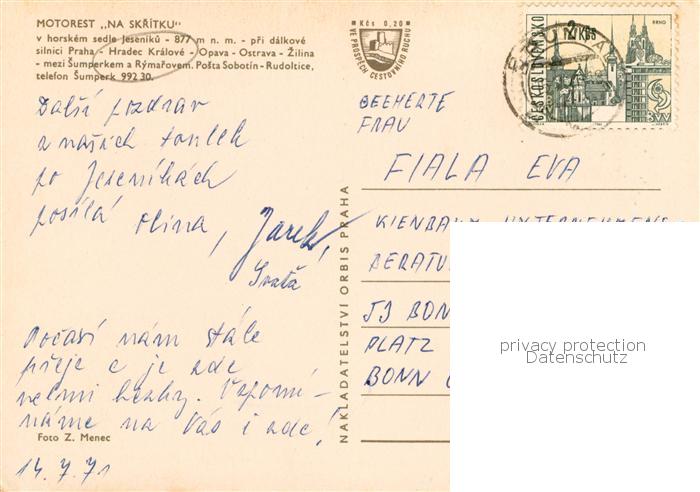 MOTOREST „NA SKŘÍTKU"
v horském sedle Jeseníků - 877 m n. m. - při dálkové
silnici Praha - Hradec Králové - Opava - Ostrava - Žilina
- mezi Šumperkem a Rýmařovem. Pošta Sobotín - Rudoltice,
telefon Šumperk 992 30.
Další pozdrav
z našich toulek
po Jeseníkách
posílá Olina, Jarek,
Svaťa
Počasí nám stále
přeje a je zde
velmi hezky. Vzpomí-
náme na Vás i zde!
Foto Z. Menec
14.7.71
NAKLADATELSTVÍ ORBIS PRAHA
Kčs 0,20
VE PROSPĚCH CESTOVNÍHO RUCHU
ČESKOSLOVENSKO
2 Kčs
BRNO
BVV
GEEHRTE
FRAU
FIALA EVA
KIENBAUM UNTERNEHMENS
BERATU
53 BON
PLATZ
BONN
privacy protection
Datenschutz